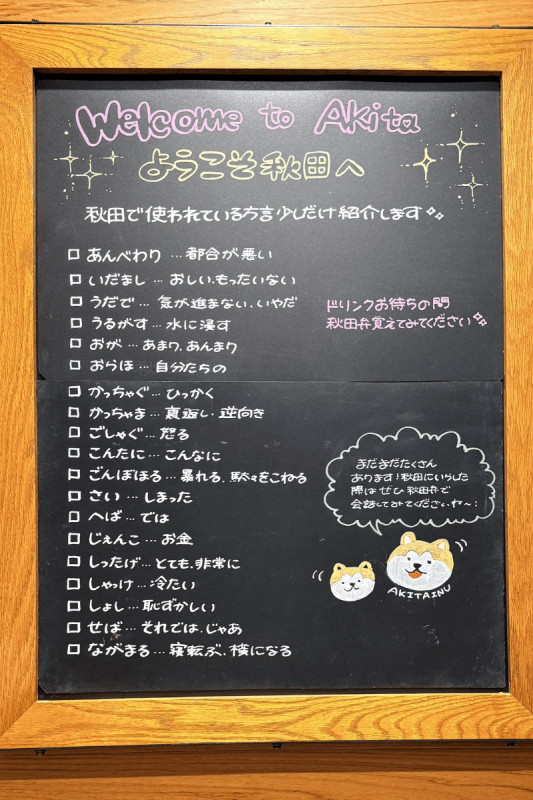 Welcome to Akita
ようこそ秋田へ
秋田で使われている方言少しだけ紹介します
□ あんべわり…都合が悪い
□ いだまし…おしい、もったいない
□ うだで…気が進まない、いやだ
□ うるがす…水に浸す
□ おが…あまり、あんまり
□ おらほ…自分たちの
ドリンクお待ちの間
秋田弁覚えてみてください
□ かっちゃぐ…ひっかく
□ かっちゃま…裏返し、逆向き
□ ごしゃぐ…怒る
□ こんたに…こんなに
□ ごんぼほる…暴れる、駄々をこねる
□ さい…しまった
□ へば…では
□ じぇんこ…お金
□ しったげ…とても、非常に
□ しゃっけ…冷たい
□ しょし…恥ずかしい
□ せば…それでは、じゃあ
□ ながまる…寝転ぶ、横になる
まだまだたくさん
あります!秋田にいらした
際はぜひ秋田弁で
会話してみてくださいね〜!
AKITAINU